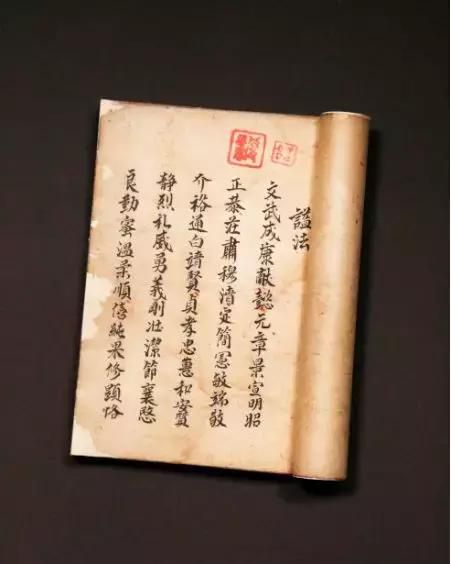 謚法
文武成康献懿元章景宣明昭
正恭莊肅穆清定簡憲敏端敬
介裕通白靖賢貞孝忠惠和安質
静烈礼威勇義剛壮潔節襄愍
良勤密温柔順信純果修顯恪